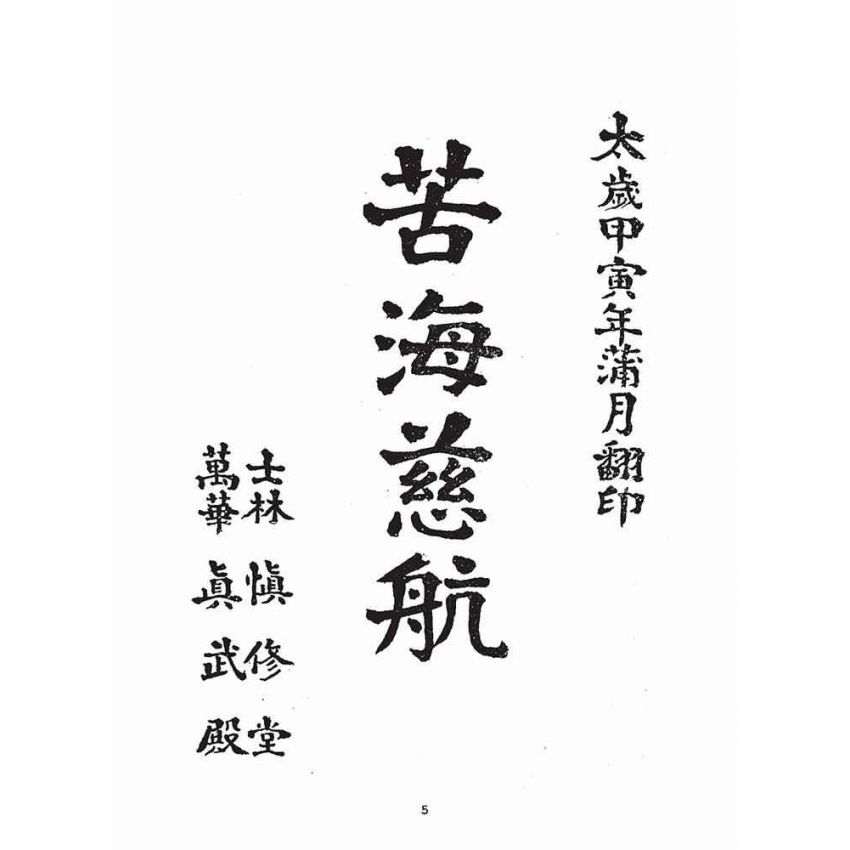 太歲甲寅年蒲月翻印
苦海慈航
士林 愼修堂
萬華 眞武殿
5